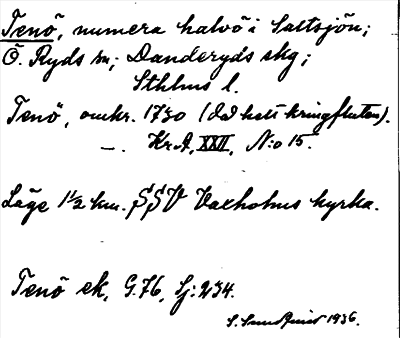 Tenö, numera halvö i Saltsjön;
Ö. Ryds sn; Danderyds skg;
Sthlms l.
Tenö, omkr. 1730 (då helt kringfluten).
—. Kr.A, XXII, N:o 15.
Läge 1 1/2 km. SSV Vaxholms kyrka.
Tenö ek, G. 76, Sj: 234.
S. Sundqvist 1936.